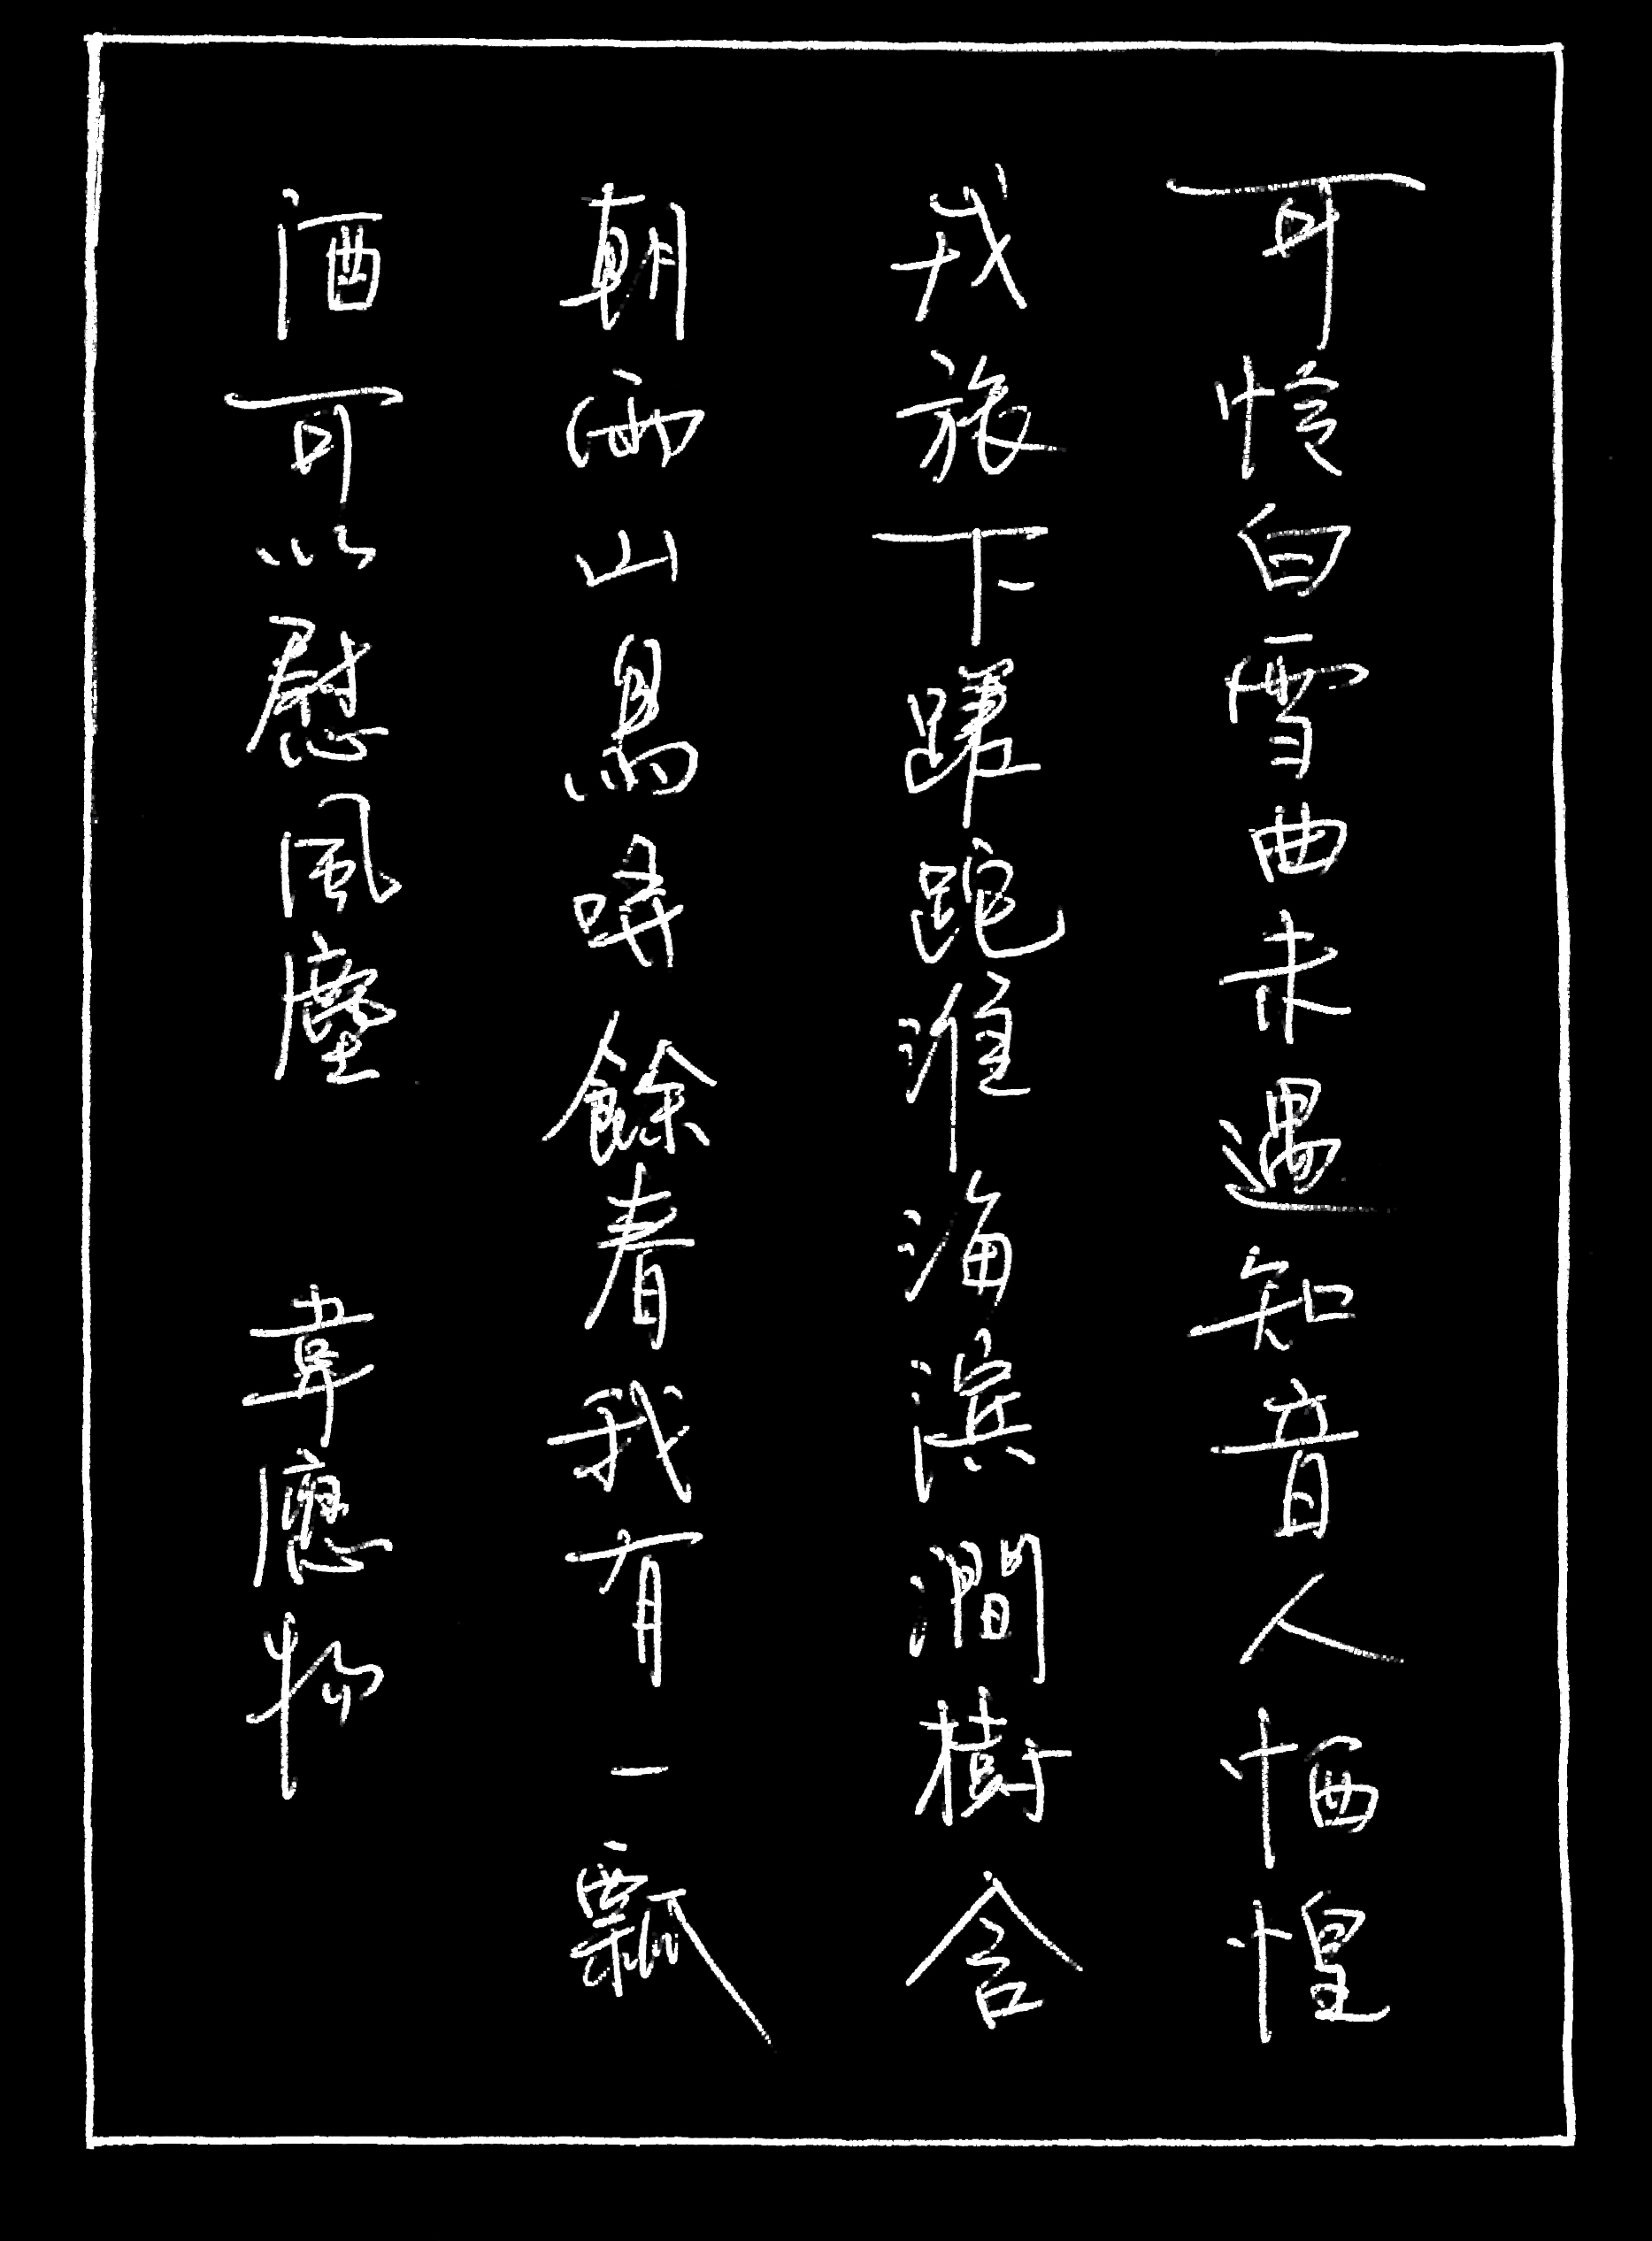 可怜白雪曲未遇知音人恓惶
戎旅下蹉跎淮海滨澗樹含
朝雨山鳥哢餘春我有一瓢
酒可以慰風塵 韋應物